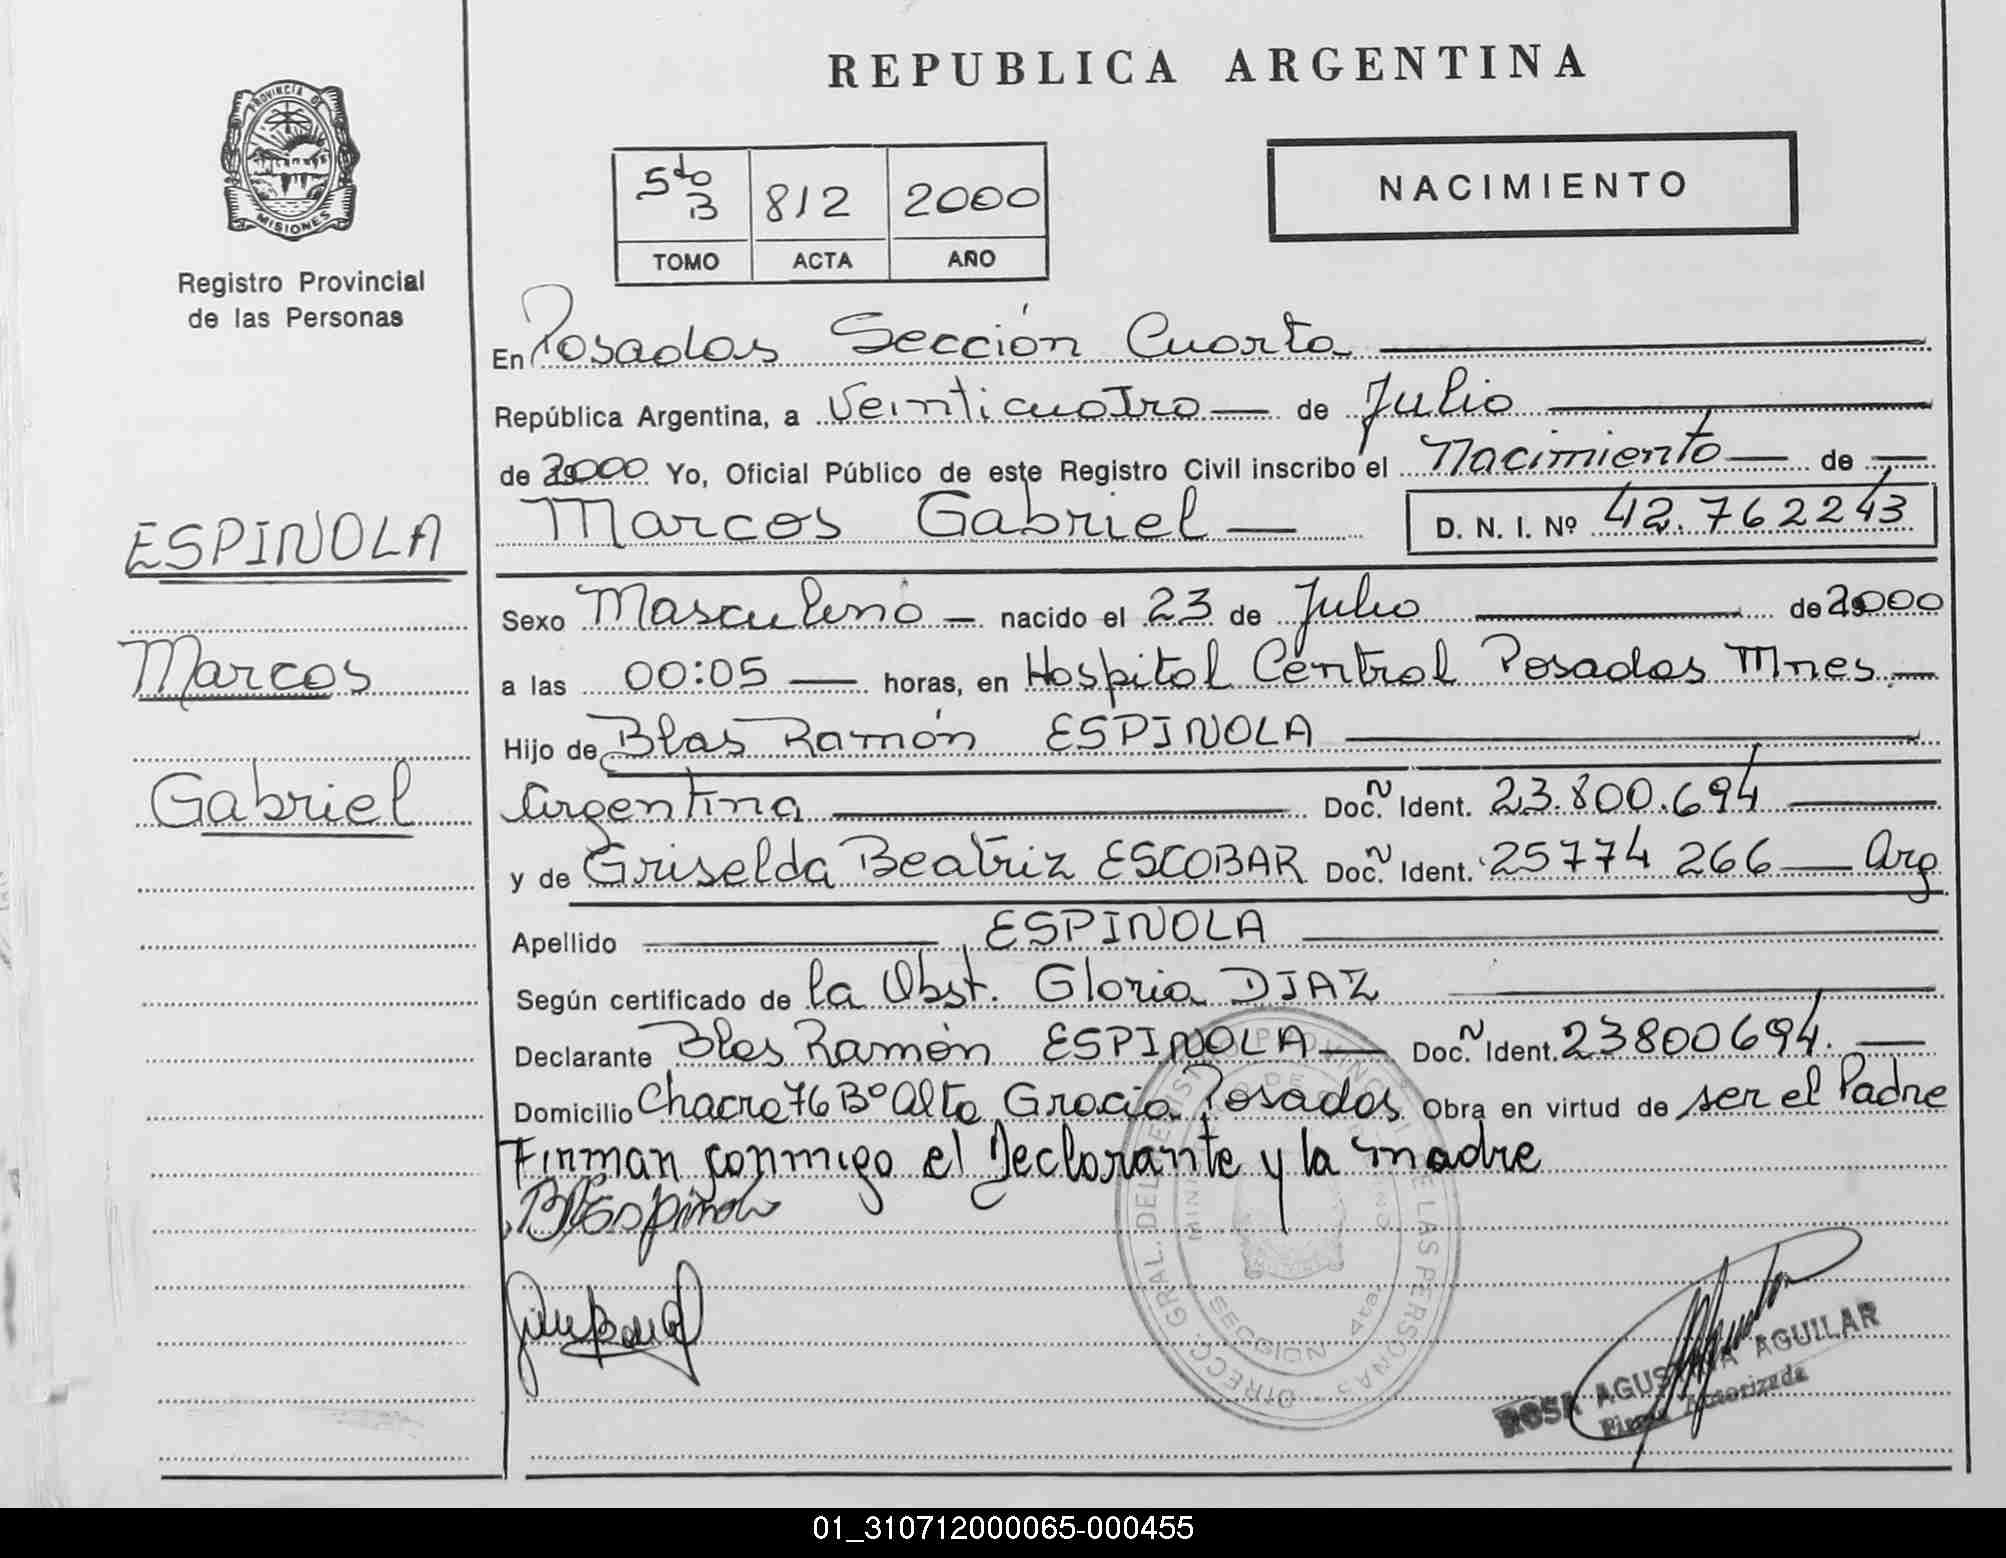 REPUBLICA ARGENTINA
PROVINCIA DE
MISIONES
Registro Provincial
de las Personas
5to B 812 2000
TOMO ACTA AÑO
NACIMIENTO
En Posadas Sección Cuarta
República Argentina, a Veinticuatro de Julio
de 2000 Yo, Oficial Público de este Registro Civil inscribo el Nacimiento de
ESPINOLA
Marcos Gabriel D. N. I. Nº 42.762243
Sexo Masculino nacido el 23 de Julio de 2000
Marcos
a las 00:05 horas, en Hospital Central Posadas Mnes.
Hijo de Blas Ramón ESPINOLA
Gabriel
Argentina Doc. Ident. 23.800.694
y de Griselda Beatriz ESCOBAR Doc. Ident. 25774266 Arg
Apellido ESPINOLA
Según certificado de la Obst. Gloria DIAZ
Declarante Blas Ramón ESPINOLA Doc. Ident. 23800694.
Domicilio Chacra 76 Bº Alta Gracia Posadas Obra en virtud de ser el Padre
Firman conmigo el Declarante y la madre
BREspinola
DIRECC. GRAL. DEL REGISTRO PROVINCIAL DE LAS PERSONAS
SECCION 4ta.
ROSA AGUSTINA AGUILAR
Firma Autorizada
01_310712000065-000455